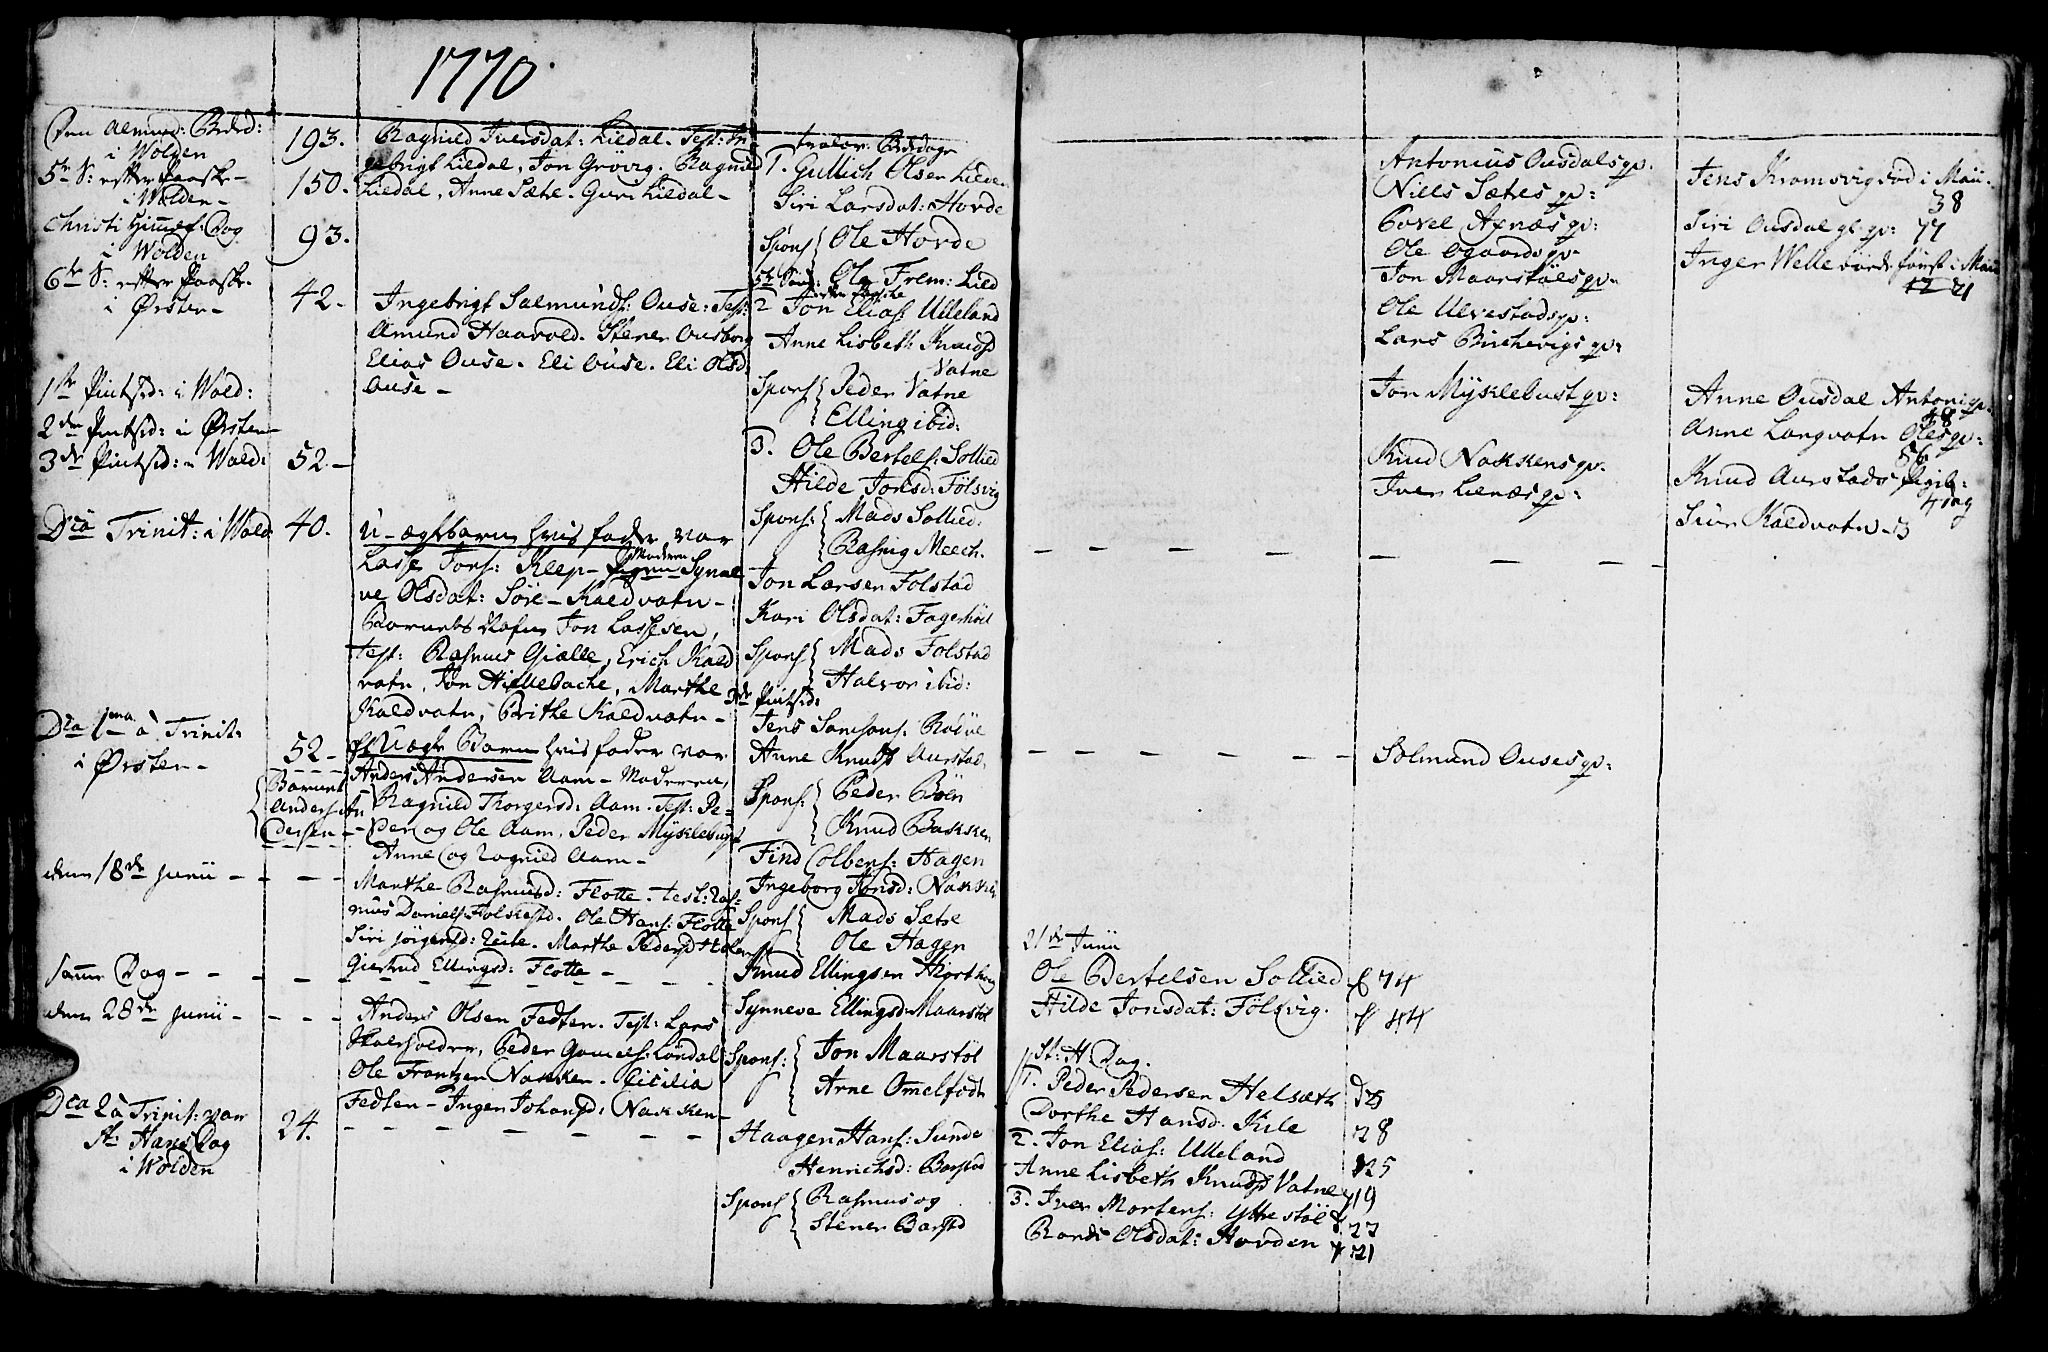 1770
Den Almind: Beded:
i Wolden
193.
5te S: efter Paaske-
i Wolden-
150.
Christi Himmelf: Dag
i Wolden
93.
6te S: efter Paaske-
i Ørsten-
42.-
1ste Pintsd: i Wold:
2den Pintsd: i Ørsten-
3die Pintsd: i Wold:
52.-
Dca Trinit: i Wold
40.
Dca 1ma à Trinit:
i Ørsten-
52-
Barnet
Anders An
dersen-
den 18de Junii - - -
samme Dag - - -
den 28de Junii - - -
Dca 2 à Trinit: var
St: Hans Dag
i Wolden
24.
Ragnild Iversdat: Liedal. Test: In
gebrigt Liedal, Jon Grøvig. Ragnild
Liedal, Anne Sæte. Guri Liedal-
Ingebrigt Salmunds: Ouse: Test:
Amund Haavold. Stener Ousborg
Elias Ouse. Eli Ouse. Eli Olsd:
Ouse-
U-ægtbarn hvis fader var
Lasse Jons: Klep- Moderen Synne
ve Olsdat: Søre-Kaldvatn-
Barnets Nafn Jon Lassesen,
Test: Rasmus Giølle, Erich Kald
vatn, Jon Hillebache, Marthe
Kaldvatn, Brithe Kaldvatn-
Uægte Barn hvis fader var
Anders Andersen Aam- Moderen
Ragnild Thorgersd: Aam. Test: Pe-
der og Ole Aam, Peder Myklebust
Anne og Ragnild Aam-
Marthe Rasmusd: Flotte. Test: Ras-
mus Daniels Folkestd. Ole Hans: Flotte
Siri Jørgensd:
Giertrud Ellingsd: Flotte-
Anders Olsen Fedten. Test: Lars
Peder Gamels: Løndal
Ole Frantzen Nakken. Cicilia
Fedten- Inger Johansd: Nakken-
Trolov: Bededage
1. Gullich Olsen Lieden
Siri Larsdat: Hovde
Spons { Ole Hovde
Ole Frem: Lied
5te Sønd: efter Paasche
2 Jon Elias: Ulleland
Anne Lisbeth Knudsd
Vatne
Spons { Peder Vatne
Elling ibid:
3. Ole Bertels: Sollied
Hilde Jonsd: Følsvig
Spons: { Mads Sollied:
Rasmus Meech.
Jon Larsen Folstad
Kari Olsdat: Fagerhøil
Spons { Mads Folstad
Halvor ibid:
3die Pintsd:
Jens Samsons: Rødve
Anne Knuds Aurstad.
Spons: { Peder Böen
Knud Bakken
Find Colbens: Hagen
Ingeborg Jonsd: Nakken
Spons { Mads Sætre
Ole Hagen
Knud Ellingsen Hiorthoug
Synneve Ellingsd: Maarstøl
Spons: { Jon Maarstøl
Arne Omelfodt
Haagen Hans: Sunde
Henrichsd: Barstad
Spons { Rasmus og
Stener Barstd
21de Junii
Ole Bertelsen Sollied 74
Hilde Jonsdat: Følsvig. 44
St: H: Dag.
1. Peder Pedersen Helsæth 25
Dorthe Hansd: Kile 28
2. Jon Elias: Ulleland 25
Anne Lisbeth Knudsd Vatne 19
3. Iver Mortens: Ytrestøl 27
Rande Olsdat: Hovden 21
Antonius Ousdals gv:
Niels Sætes gv:
Povel Afnæs gv:
Ole Øgaards gv-
Jon Maarstøls gv-
Ole Ulvestads gv:
Lars Birchevigs gv:
Jon Myklebust gv:
Knud Nakkens gv.
Iver Lienæs gv:
Solmund Ouses gv:
Jens Kramsvig død i Maii.
38
Siri Ousdal gl. gv: 77
Inger Welle
21
Anne Ousdal Antoni gv.
48
Anne Langvatn Oles gv:
56
Knud Aurstads Pigeb:
4 dag
Siver Kaldvatn- 3